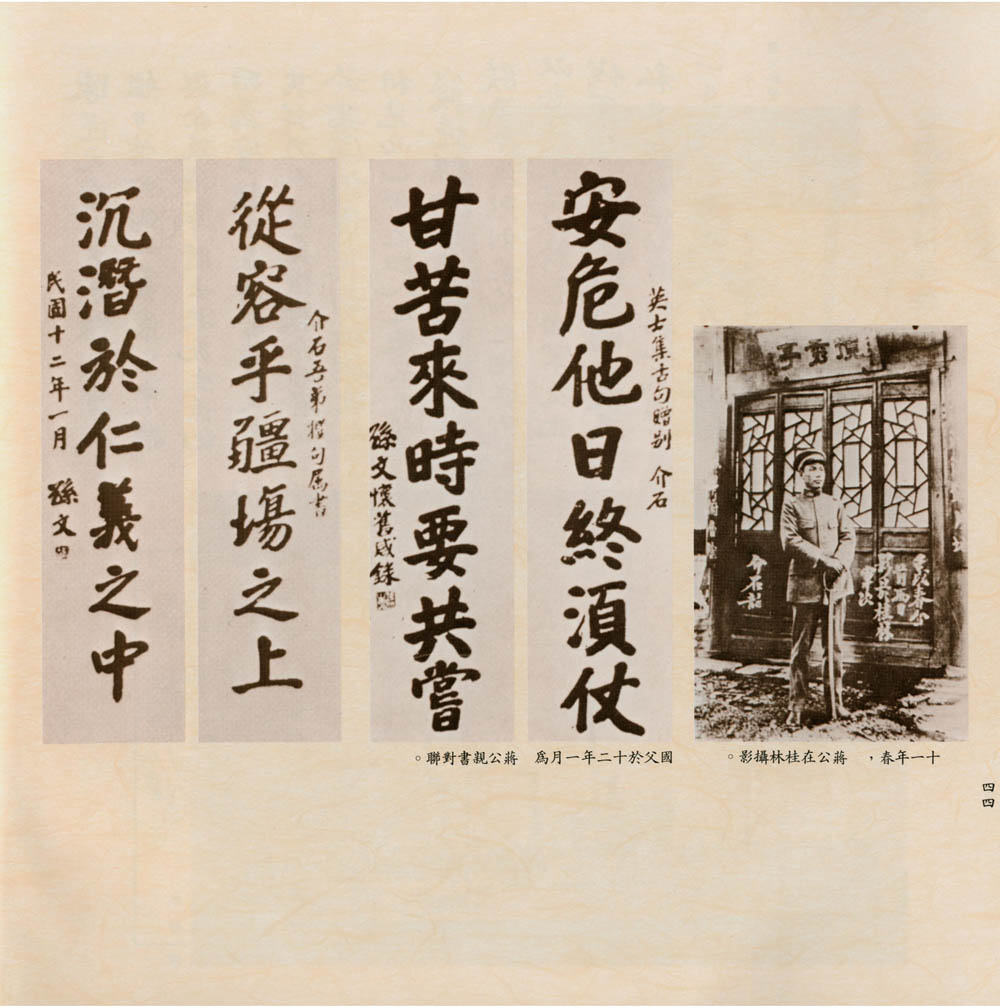 英士集古句贈別 介石
安危他日終須仗
甘苦來時要共嘗
孫文懷舊感錄
介石吾弟撰句屬書
從容乎疆塲之上
沉潛於仁義之中
民國十二年一月 孫文
桂林
軍次
介石
十一年春， 蔣公在桂林攝影。
國父於十二年一月爲 蔣公親書對聯。
四四